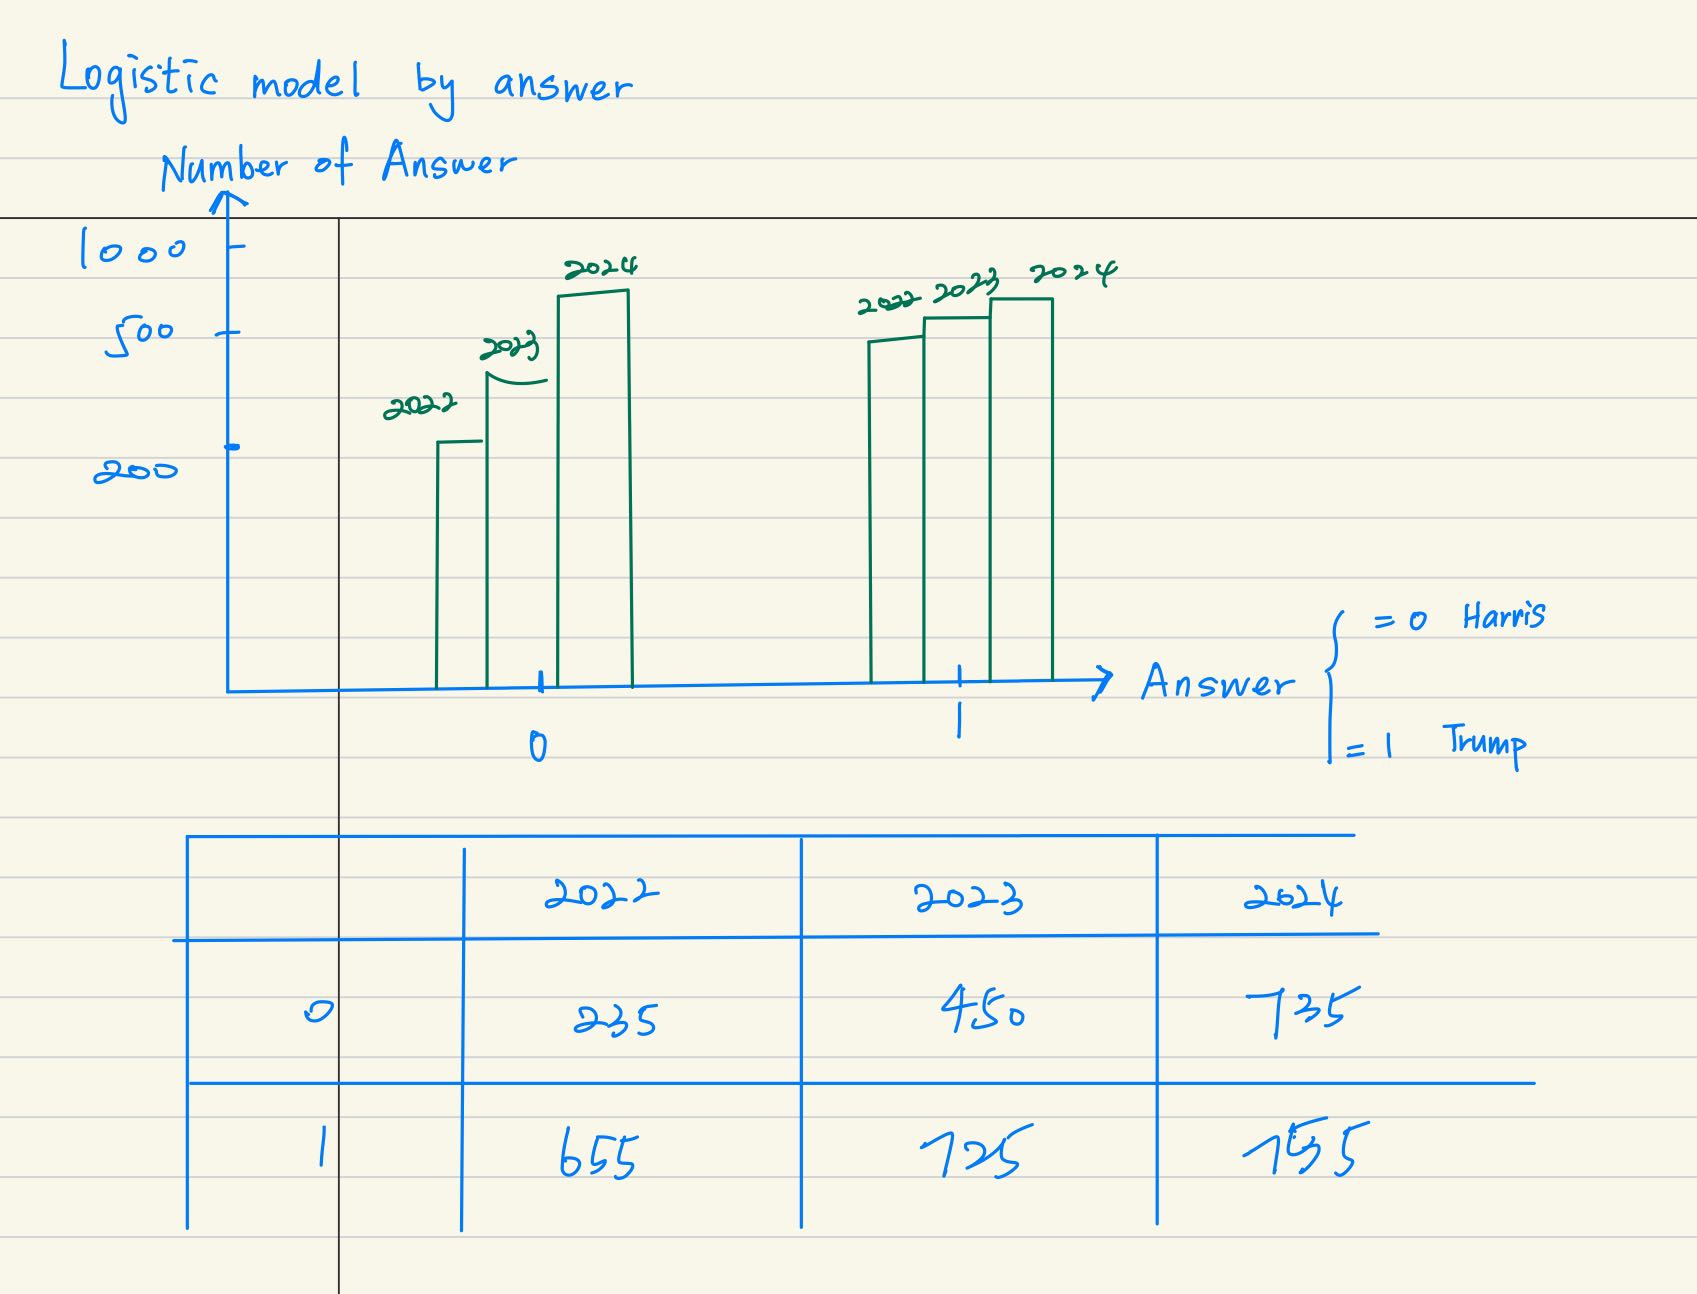 Logistic model by answer
Number of Answer
1000
500
200
2022 2023 2024
2022 2023 2024
0 1
Answer
= 0 Harris
= 1 Trump
2022 2023 2024
0 235 450 735
1 655 725